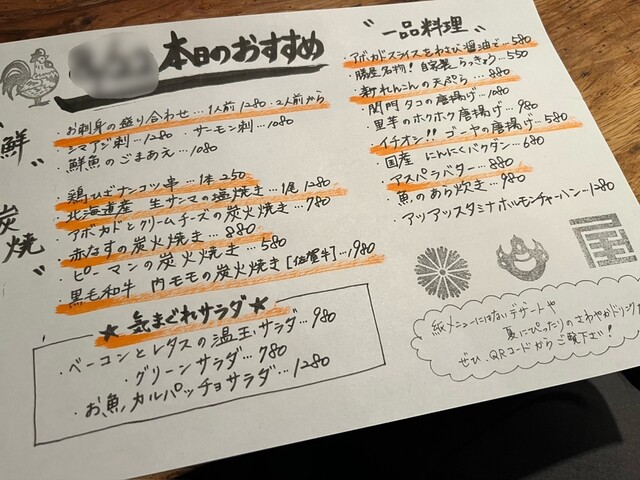 本日のおすすめ
"鮮"
・お刺身の盛り合わせ…1人前 1280・2人前から
・シマアジ刺…1280 サーモン刺…1080
・鮮魚のごまあえ…1080
炭焼"
・鶏ひざナンコツ串…1本 250
・北海道産 生サンマの塩焼き…1尾 1280
・アボカドとクリームチーズの炭火焼き…780
・赤なすの炭火焼き…880
・ピーマンの炭火焼き…580
・黒毛和牛 内モモの炭火焼き[佐賀牛]…1980
★気まぐれサラダ★
・ベーコンとレタスの温玉サラダ…980
・グリーンサラダ…780
・お魚カルパッチョサラダ…1280
"一品料理"
・アボカドスライスをわさび醤油で…580
名物!自家製 らっきょう…550
・新れんこんの天ぷら…880
・関門タコの唐揚げ…1080
・里芋のホクホク唐揚げ…980
・イチオシ!!ゴーヤの唐揚げ…580
・国産 にんにくバクダン…680
・アスパラバター…880
・魚のあら炊き…980
・アツアツスタミナホルモンチャーハン…1280
紙メニューにはないデザートや
夏にぴったりのさわやかドリンク
ぜひ、QRコードからご覧下さい!